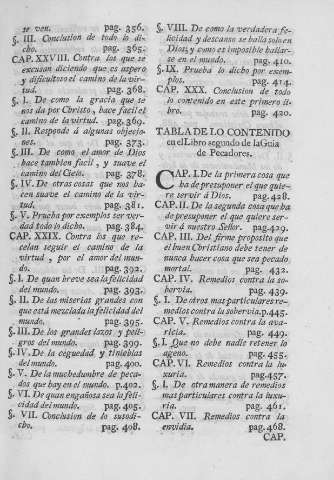 se ven. pag. 356.
§. III. Conclusion de todo lo dicho. pag. 365.
CAP. XXVIII. Contra los que se
escusan diciendo que es aspero
y dificultoso el camino de la virtud. pag. 368.
§. I. De como la gracia que se
nos da por Christo, hace facil el
camino de la virtud. pag. 369.
§. II. Responde á algunas objeciones. pag. 373.
§. III. De como el amor de Dios
hace tambien facil, y suave el
camino del Cielo. pag. 378.
§. IV. De otras cosas que nos hacen suave el camino de la virtud. pag. 381.
§. V. Prueba por exemplos ser verdad todo lo dicho. pag. 384.
CAP. XXIX. Contra los que recelan seguir el camino de la
virtud, por el amor del mundo. pag. 392.
§. I. De quan breve sea la felicidad
del mundo. pag. 393.
§. II. De las miserias grandes con
que está mezclada la felicidad del
mundo. pag. 395.
§. III. De los grandes lazos y peligros del mundo. pag. 399.
§. IV. De la ceguedad y tinieblas
del mundo. pag. 400.
§. V. De la muchedumbre de pecados que hay en el mundo. p.402.
§. VI. De quan engañosa sea la felicidad del mundo. pag. 405.
§. VII. Conclusion de lo susodicho. pag. 408.
§. VIII. De como la verdadera felicidad y descanso se halla solo en
Dios, y como es imposible hallarse en el mundo. pag. 410.
§. IX. Prueba lo dicho por exemplos. pag. 414.
CAP. XXX. Conclusion de todo
lo contenido en este primero libro. pag. 420.
TABLA DE LO CONTENIDO
en el Libro segundo de la Guia
de Pecadores.
CAP. I. De la primera cosa que
ha de presuponer el que quiere servir á Dios. pag. 428.
CAP. II. De la segunda cosa que ha
de presuponer el que quiere servir á nuestro Señor. pag. 429.
CAP. III. Del firme proposito que
el buen Christiano debe tener de
nunca hacer cosa que sea pecado
mortal. pag. 432.
CAP. IV. Remedios contra la sobervia. pag. 439.
§. I. De otros mas particulares remedios contra la sobervia. p.445.
CAP. V. Remedios contra la avaricia. pag. 449.
§. I. Que no debe nadie retener lo
ageno. pag. 455.
CAP. VI. Remedios contra la luxuria. pag. 457.
§. I. De otra manera de remedios
mas particulares contra la luxuria. pag. 461.
CAP. VII. Remedios contra la
envidia. pag. 468.
CAP.